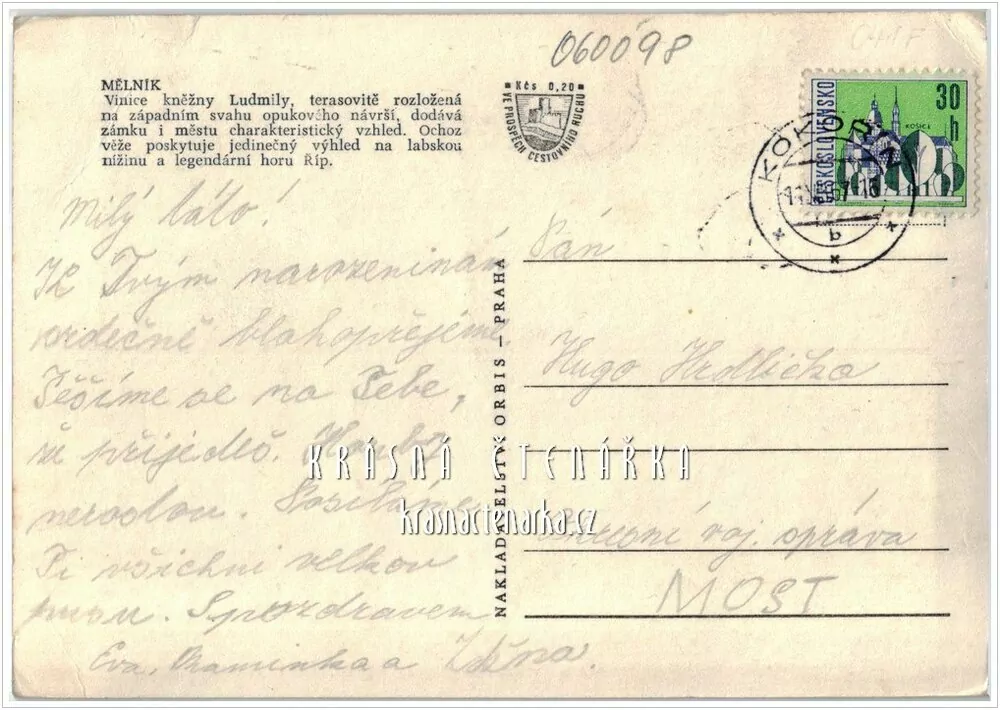 060098
MĚLNÍK
Vinice kněžny Ludmily, terasovitě rozložená
na západním svahu opukového návrší, dodává
zámku i městu charakteristický vzhled. Ochoz
věže poskytuje jedinečný výhled na labskou
nížinu a legendární horu Říp.
Kčs 0,20
VE PROSPĚCH CESTOVNÍHO RUCHU
ČESKOSLOVENSKO
30
h
KOŠICE
b
Milý táto!
K Tvým narozeninám
srdečně blahopřejeme.
Těšíme se na Tebe,
že přijedeš. Houby
nerostou. Posíláme
Ti všichni velkou
pusu. S pozdravem
Eva, Maminka a Zdena.
NAKLADATELSTVÍ ORBIS — PRAHA
Pán
Hugo Hrdlička
voj. správa
MOST
KRÁSNÁ ČTENÁŘKA
krasnactenarka.cz